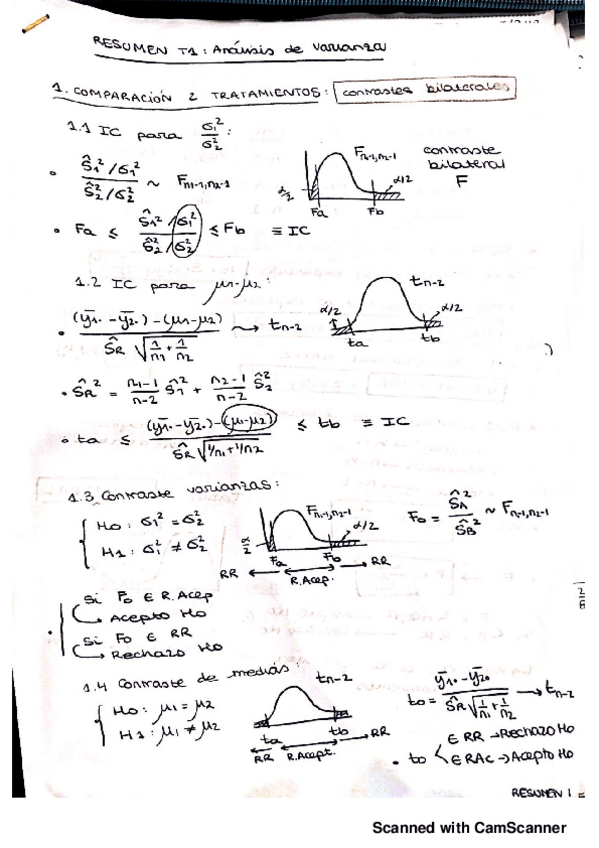 RESUMEN T1: Análisis de varianza
1. COMPARACIÓN 2 TRATAMIENTOS: contrastes bilaterales
1.1 IC para σ₁²/σ₂²:
• (Ŝ₁²/σ₁²)/(Ŝ₂²/σ₂²) ~ Fn₁-1,n₂-1
α/2 Fa Fb α/2 Fn₁-1,n₂-1
contraste
bilateral
F
• Fa ≤ (Ŝ₁²/σ₁²)/(Ŝ₂²/σ₂²) ≤ Fb ≡ IC
1.2 IC para μ₁-μ₂:
• ((ȳ₁. - ȳ₂.) - (μ₁-μ₂))/(ŜR √(1/n₁ + 1/n₂)) → tn-2
α/2 ta tb α/2 tn-2
• ŜR² = (n₁-1)/(n-2) Ŝ₁² + (n₂-1)/(n-2) Ŝ₂²
• ta ≤ ((ȳ₁. - ȳ₂.) - (μ₁-μ₂))/(ŜR √(1/n₁ + 1/n₂)) ≤ tb ≡ IC
1.3 Contraste varianzas:
H0: σ₁² = σ₂²
H1: σ₁² ≠ σ₂²
α/2 Fa Fb α/2 Fn₁-1,n₂-1
RR R.Acep. RR
F0 = ŜA²/ŜB² ~ Fn₁-1,n₂-1
Si F0 ∈ R.Acep
→ Acepto H0
• Si F0 ∈ RR
→ Rechazo H0
1.4 Contraste de medias:
H0: μ₁ = μ₂
H1: μ₁ ≠ μ₂
tn-2 ta tb
RR R.Acept. RR
t0 = (ȳ₁. - ȳ₂.)/(ŜR √(1/n₁ + 1/n₂)) → tn-2
• t0 ∈ RR → Rechazo H0
∈ RAC → Acepto H0
RESUMEN 1
Scanned with CamScanner